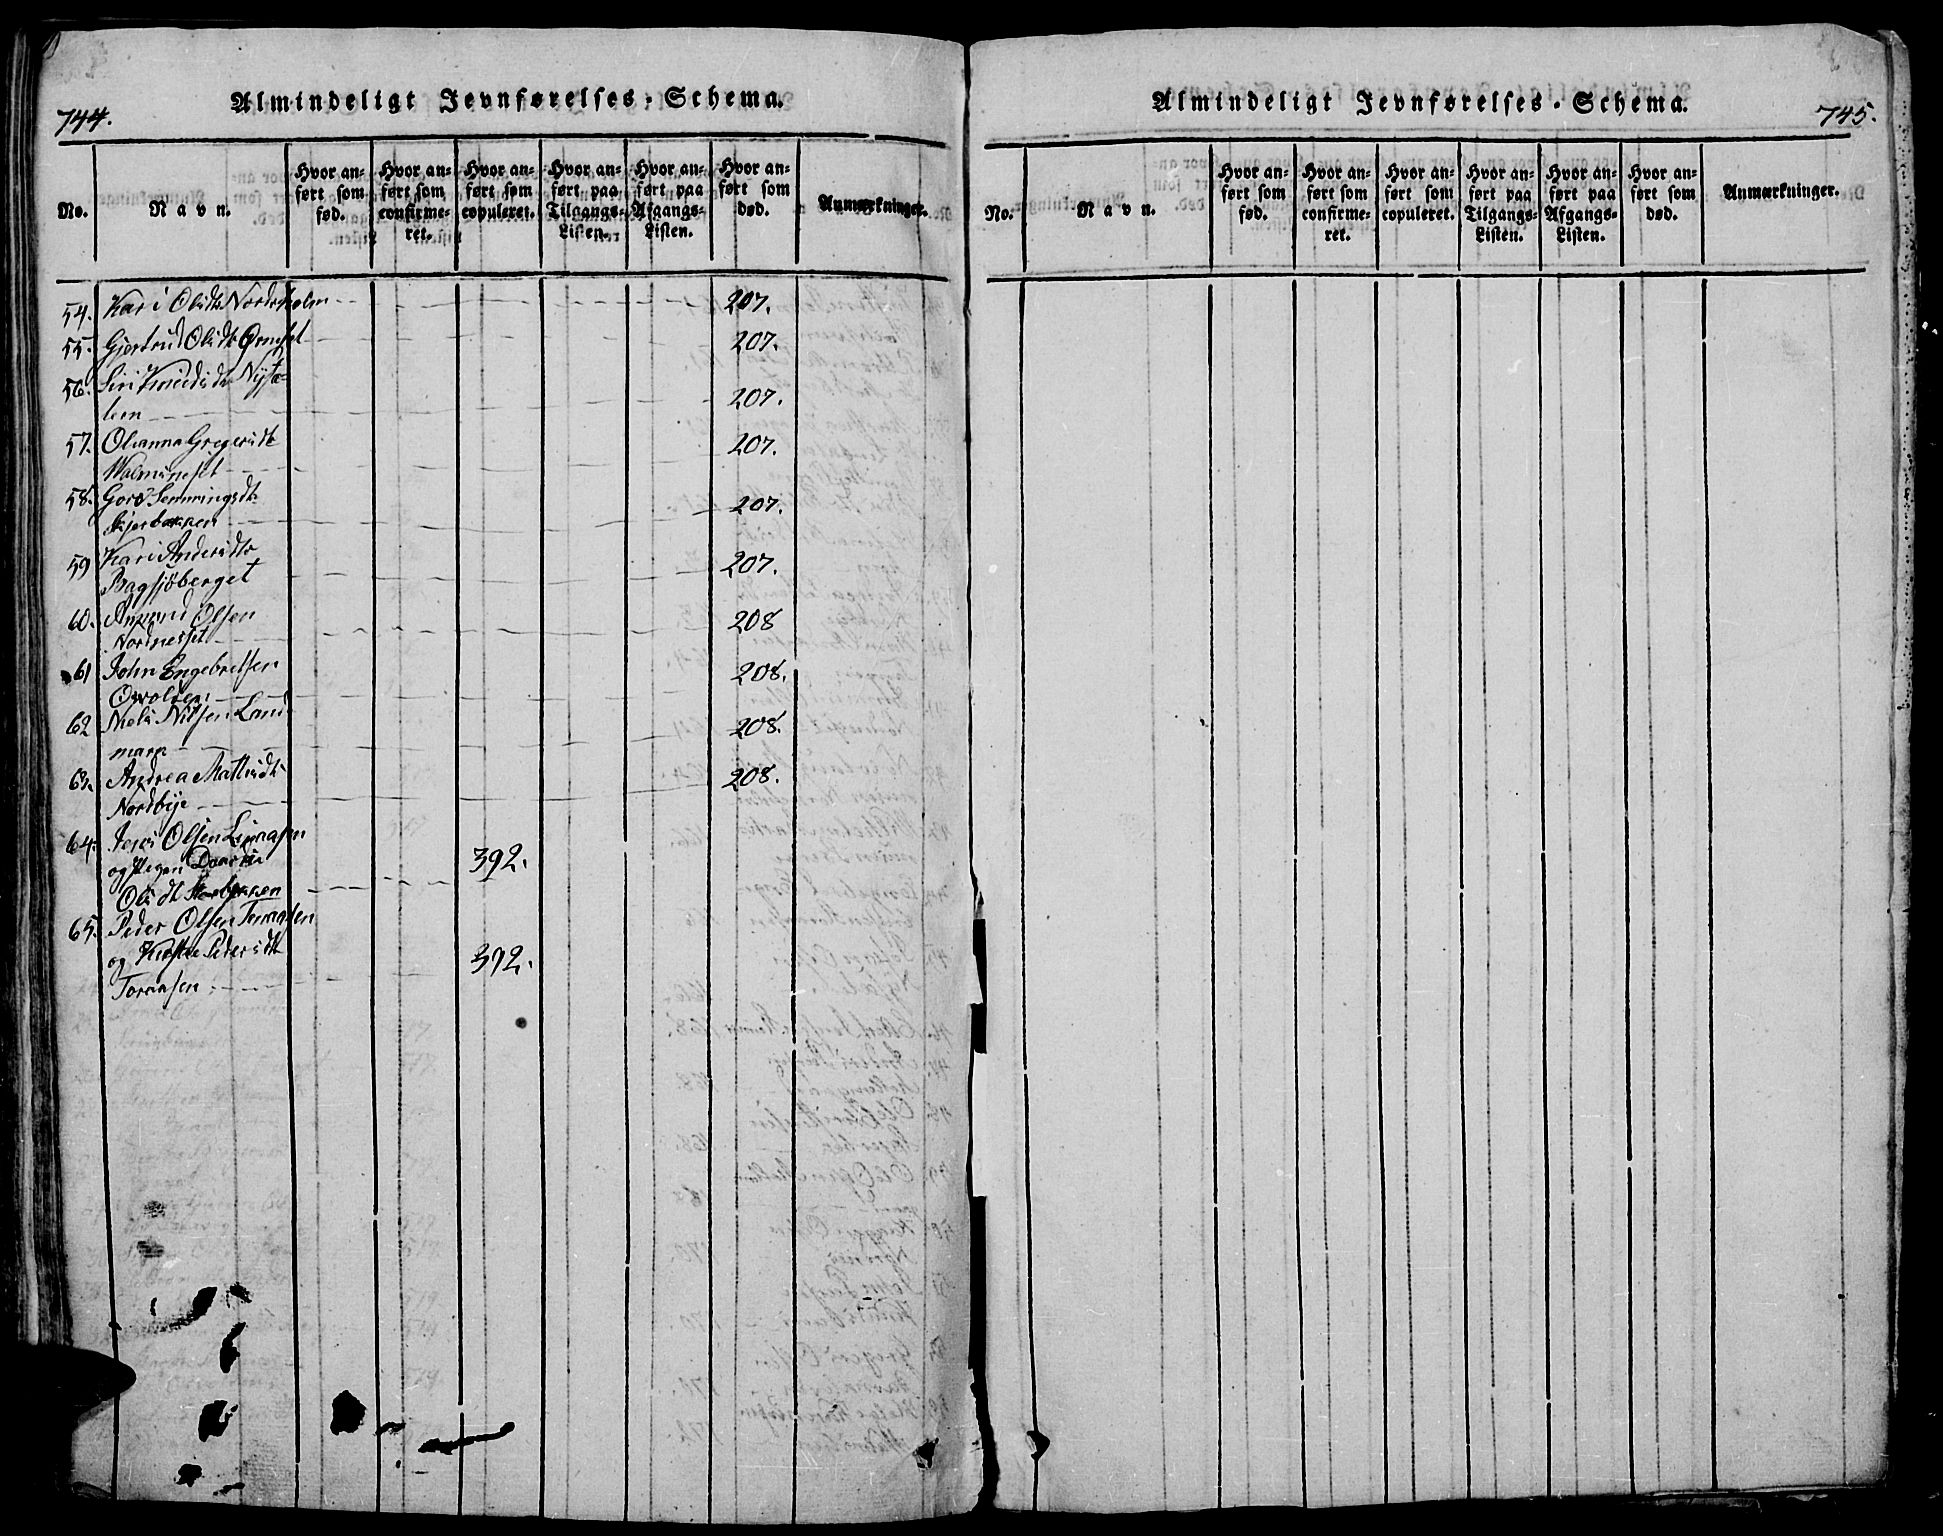 744.
Almindeligt Jevnførelses-Schema.
No.
Navn.
Hvor an-
ført som
fød.
Hvor an-
ført som
confirme-
ret.
Hvor an-
ført som
copuleret.
Hvor an-
ført paa
Tilgangs-
Listen.
Hvor an-
ført paa
Afgangs-
Listen.
Hvor an-
ført som
død.
Anmærkninger.
54. Kari Olsdtr Nordsholm 207.
55. Gjertrud Olsdtr 207.
56. Siri Knudsdtr Nysæ-
teren 207.
57. Oleanna Gregersdtr
207.
58. Goro Semmingsdtr
207.
59 Kari Andersdtr
Bagsjöberget 207.
60. Amund Olsen
Nordnesset 208
61 John Engebretsen
208.
62 Niels Nilsen Land-
mark 208.
63. Andrea Mathisdtr
Nordbye 208.
64. Jens Olsen
og Pigen
Olsdtr 392.
65. Peder Olsen
og Pedersdtr
392.
Almindeligt Jevnførelses-Schema.
745.
No.
Navn.
Hvor an-
ført som
fød.
Hvor an-
ført som
confirme-
ret.
Hvor an-
ført som
copuleret.
Hvor an-
ført paa
Tilgangs-
Listen.
Hvor an-
ført paa
Afgangs-
Listen.
Hvor an-
ført som
død.
Anmærkninger.